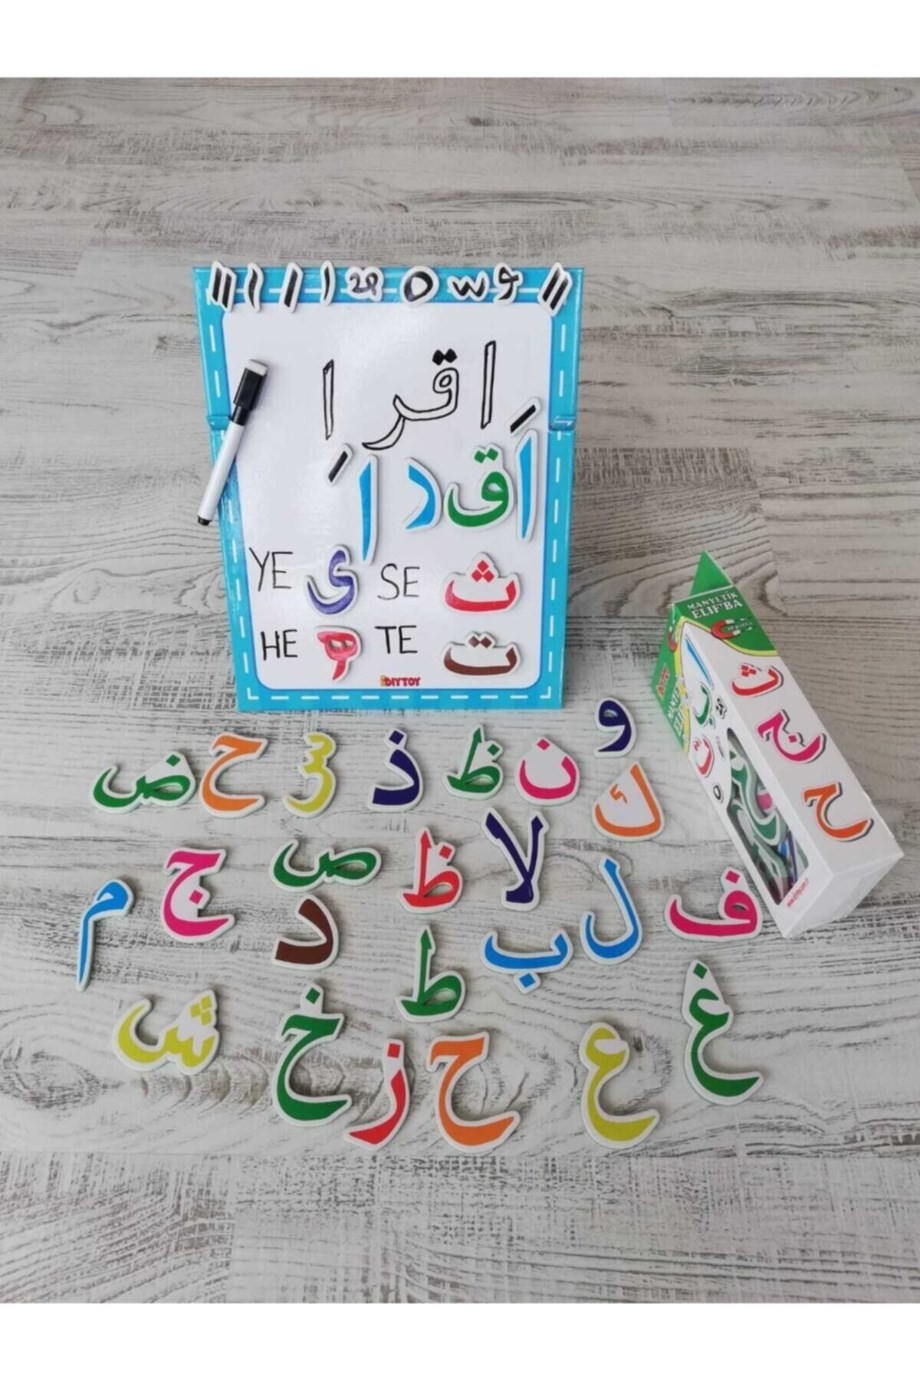 اقرا
اَ ق ر اِ
YE ى SE ث
HE ه TE ت
DIYTOY
MANYETİK
ELİF'BA
ث
ج
ح
و
ض ح س ذ ظ ن ك
م ج ص ظ لا ل ف
د ب
ط
ش خ ز ح ع غ